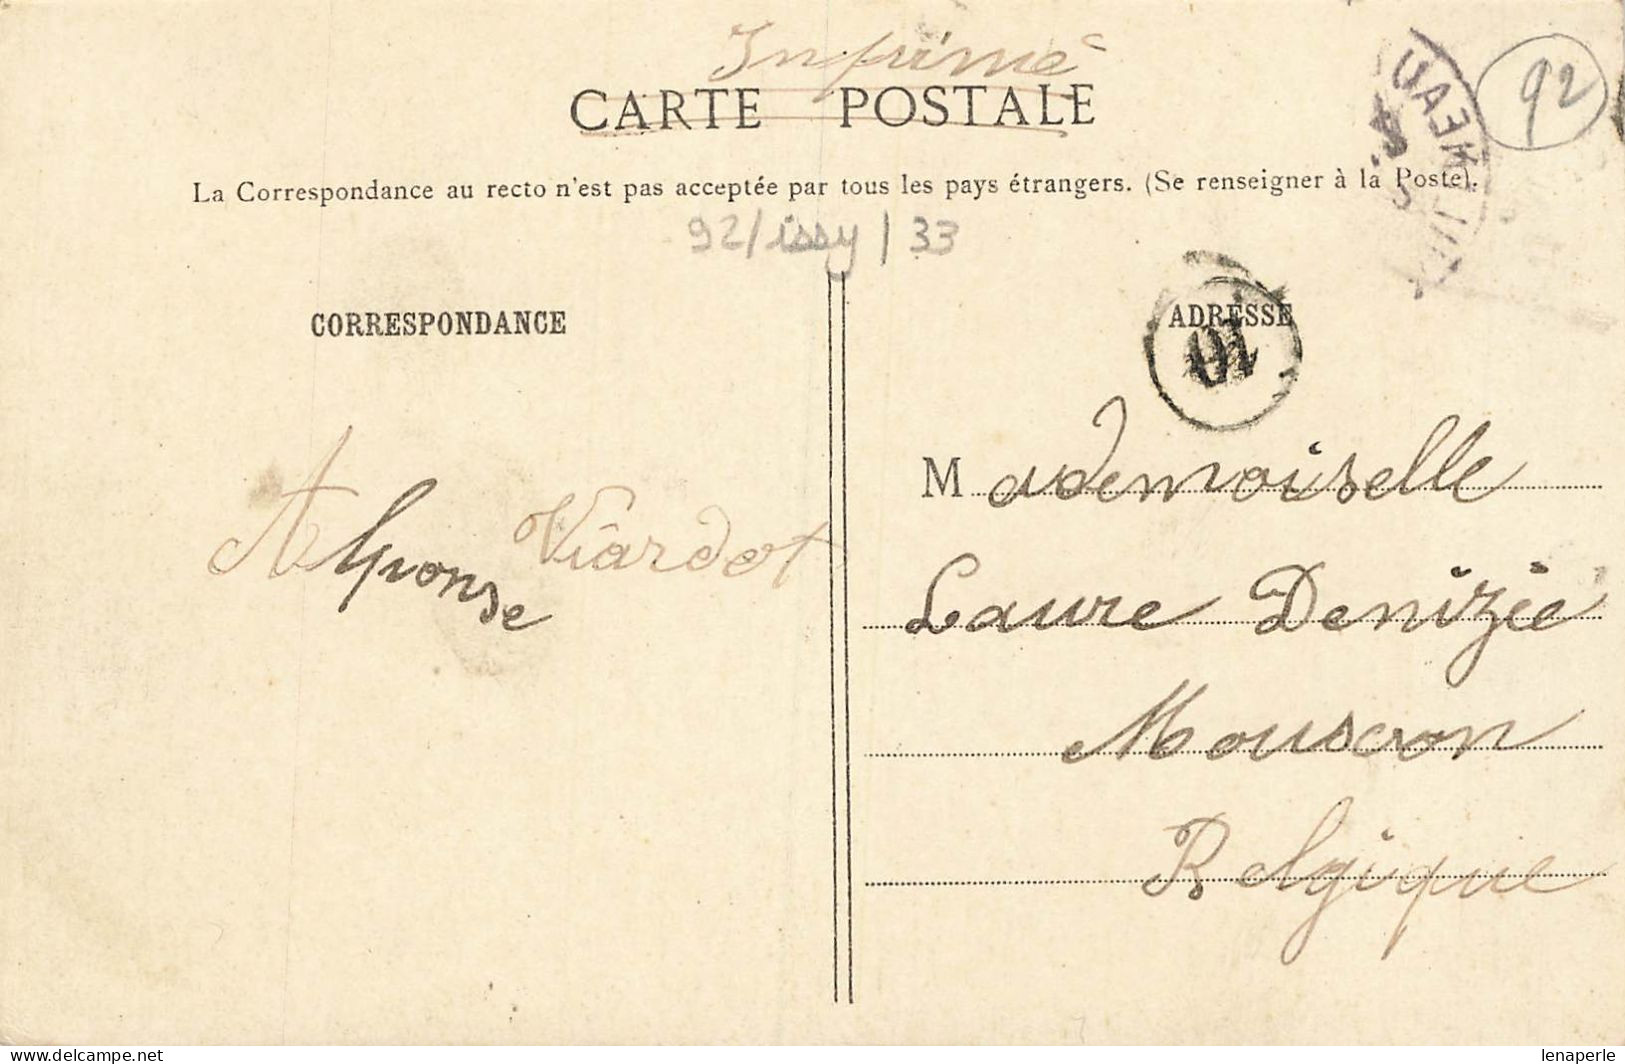 Imprimé
CARTE POSTALE
La Correspondance au recto n'est pas acceptée par tous les pays étrangers. (Se renseigner à la Poste).
92
92/issy/33
CORRESPONDANCE
Alphonse Viardot
ADRESSE
Mademoiselle
Laure Denizié
Mouscron
Belgique
lenaperle
https://www.delcampe.net